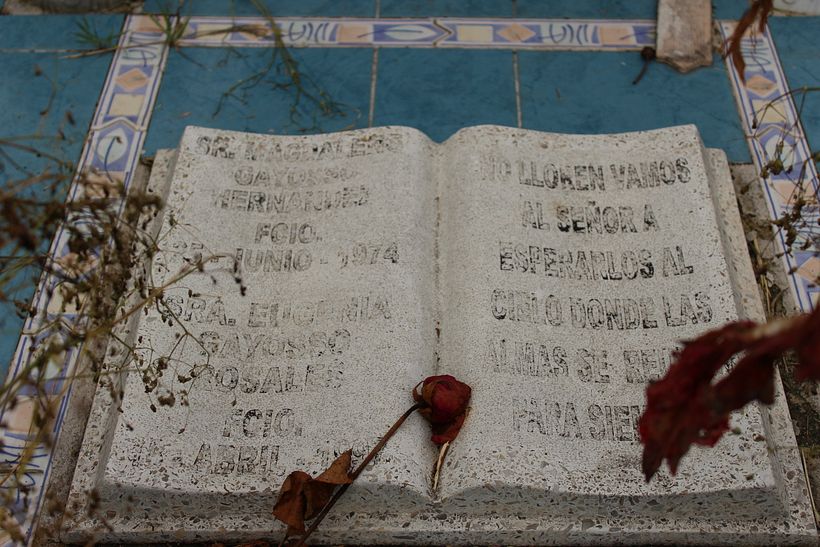 SR. MAGDALENO
GAYOSSO
HERNANDES
FCIO.
JUNIO - 1974
SRA. EUGENIA
GAYOSSO
ROSALES
FCIO.
ABRIL -
NO LLOREN VAMOS
AL SEÑOR A
ESPERARLOS AL
CIELO DONDE LAS
ALMAS SE
PARA